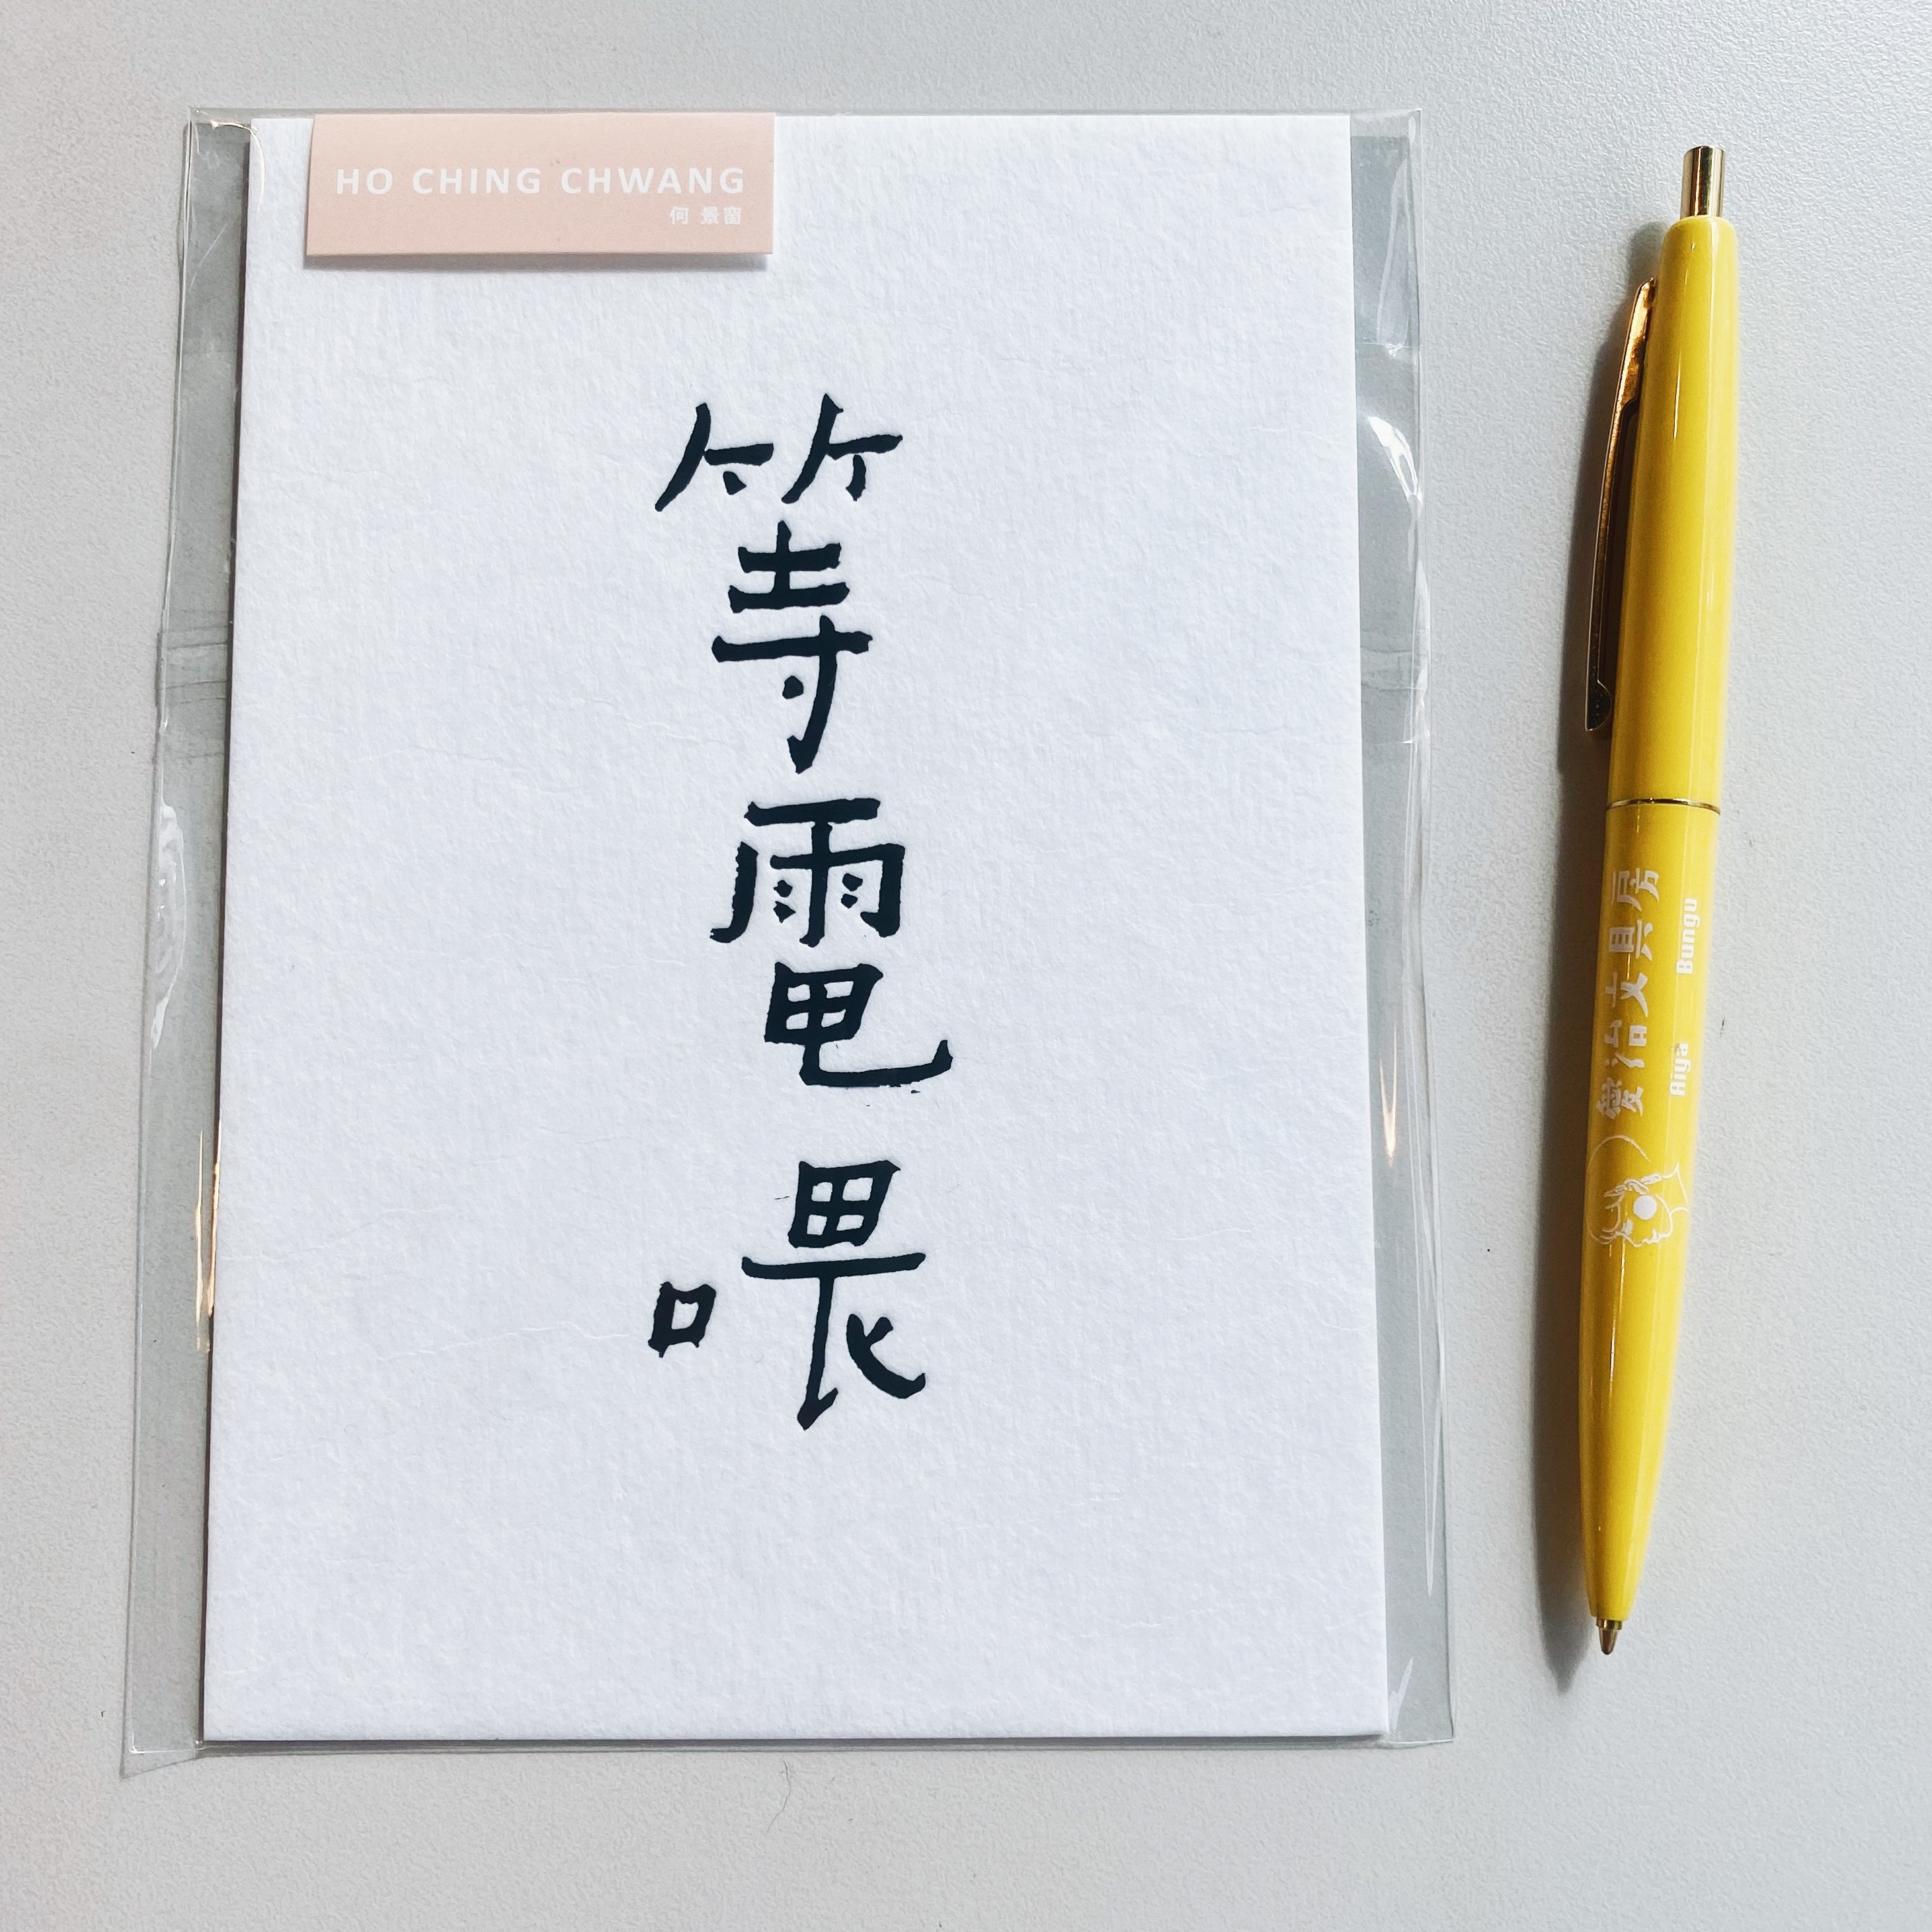 HO CHING CHWANG
何 景窗
等電喂
愛治文具房
Aiya Bungu